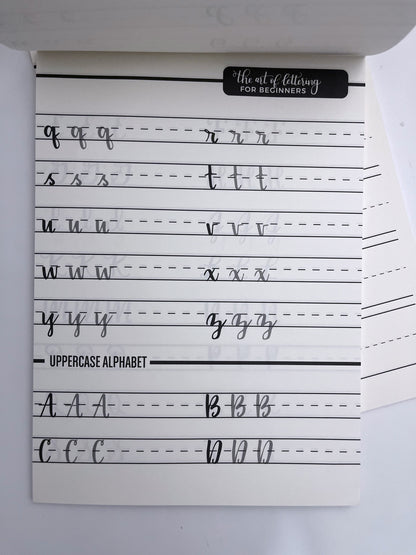 the art of lettering
FOR BEGINNERS
q q q r r r
s s s t t t
u u u v v v
w w w x x x
y y y z z z
UPPERCASE ALPHABET
A A A B B B
C C C D D D